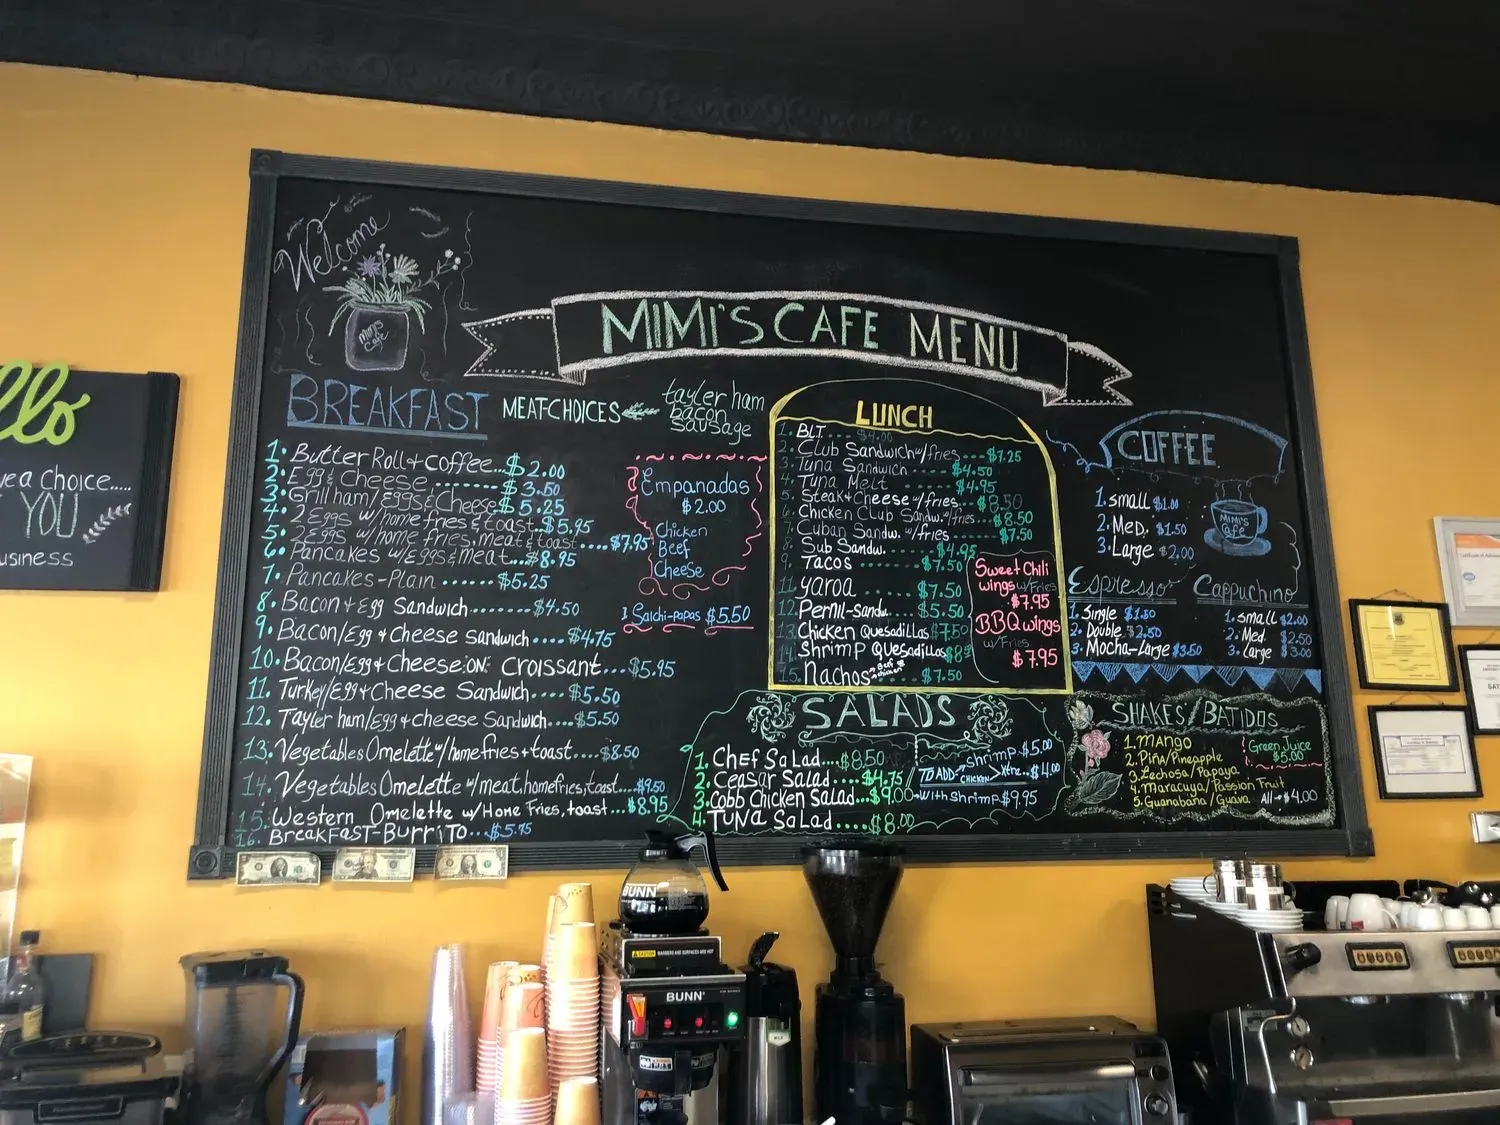 Welcome
Mimi's
Cafe
MIMI'S CAFE MENU
llo
ve a choice.....
YOU
usiness
BREAKFAST
MEAT-CHOICES
tayler ham
bacon
sausage
1. Butter Roll + coffee... $2.00
2. Egg & Cheese ........ $3.50
3. Grill ham/Eggs & Cheese $5.25
4. 2 Eggs w/home fries & toast... $5.95
5. 2 Eggs w/home fries, meat & toast .... $7.95
6. Pancakes w/Eggs & meat... $8.95
7. Pancakes-Plain ...... $5.25
8. Bacon + Egg Sandwich........ $4.50
9. Bacon/Egg + Cheese Sandwich.... $4.75
10. Bacon/Egg + Cheese ON croissant.... $5.95
11. Turkey/Egg + Cheese Sandwich.... $5.50
12. Tayler ham/Egg + Cheese Sandwich.... $5.50
13. Vegetables Omelette w/homefries + toast.... $8.50
14. Vegetables Omelette w/meat, homefries, toast... $9.50
15. Western Omelette w/Home Fries, toast... $8.95
16. BreakFAST-BurriTO... $5.95
Empanadas
$2.00
Chicken
Beef
Cheese
1 Salchi-papas $5.50
LUNCH
1. BLT.... $4.00
2. Club Sandwich w/fries.... $7.25
3. Tuna Sandwich ..... $4.50
4. Tuna Melt ..... $4.95
5. Steak + Cheese w/fries... $8.50
6. Chicken Club Sandw. w/fries... $8.50
7. Cuban Sandw. w/fries.... $7.50
8. Sub Sandw. .... $4.95
9. Tacos ..... $7.50
11. yaroa .... $7.50
12. Pernil-Sandw. .... $5.50
13. Chicken Quesadillas $7.50
14. Shrimp Quesadillas
15. Nachos Beef & chicken .. $7.50
Sweet Chili
wings w/Fries
$7.95
BBQ wings
w/Fries
$7.95
SALADS
1. CHEF SaLad.... $8.50
2. Ceasar Salad .... $4.75
3. Cobb Chicken Salad... $9.00
4. TUNA SaLad .... $8.00
TO ADD
Shrimp.. $5.00
CHICKEN Xtra.. $4.00
with shrimp $9.95
COFFEE
1. small $1.00
2. Med. $1.50
3. Large $2.00
MIMI'S
Cafe
Espresso
1. Single $1.50
2. Double $2.50
3. Mocha-Large $3.50
Cappuchino
1. small $2.00
2. Med $2.50
3. Large $3.00
SHAKES/BATIDOS
1. MANGO
2. Piña/Pineapple
3. Lechosa/Papaya
4. Maracuya/Passion Fruit
5. Guanabana/Guava All → $4.00
Green Juice
$5.00
BUNN
CAUTION
BUNN
MILK